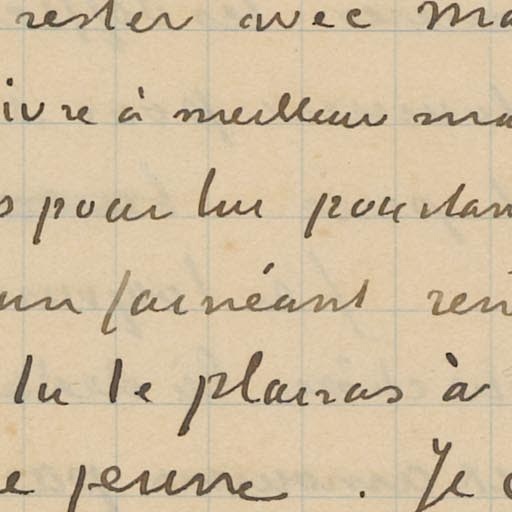 rester avec ma
ivre à meilleur ma
s pour lui pourtan
un fainéant ren
tu te plairas à
e jeune. Je